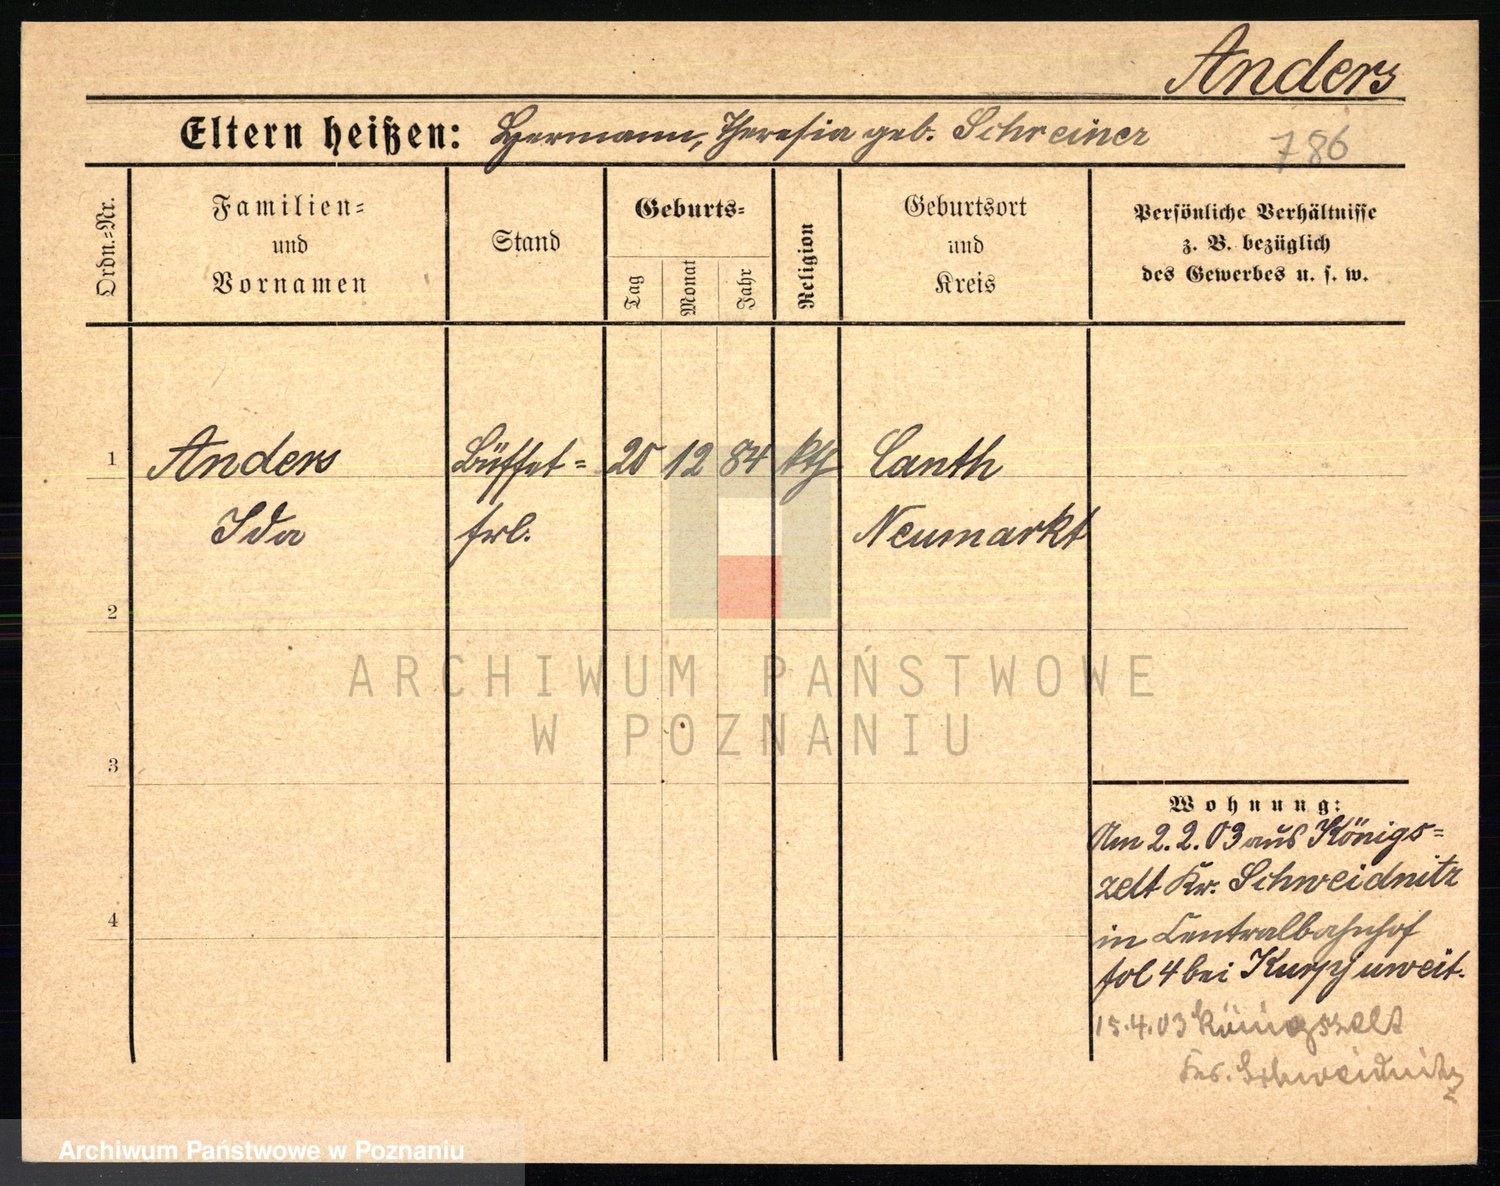 Anders
Eltern heißen: Hermann, Theresia geb. Schreiner
786
Ordn.-Nr.
Familien-
und
Vornamen
Stand
Geburts-
Tag
Monat
Jahr
Religion
Geburtsort
und
Kreis
Persönliche Verhältnisse
z. B. bezüglich
des Gewerbes u. s. w.
1
Anders Büffet= 20 12 84 kth Canth
Ida frl. Neumarkt
2
ARCHIWUM PAŃSTWOWE
W POZNANIU
3
Wohnung:
Am 2.2.03 aus Königs=
zelt Kr. Schweidnitz
in Centralbahnhof
fol 4 bei
15.4.03 Königszelt
Schweidnitz
4
Archiwum Państwowe w Poznaniu